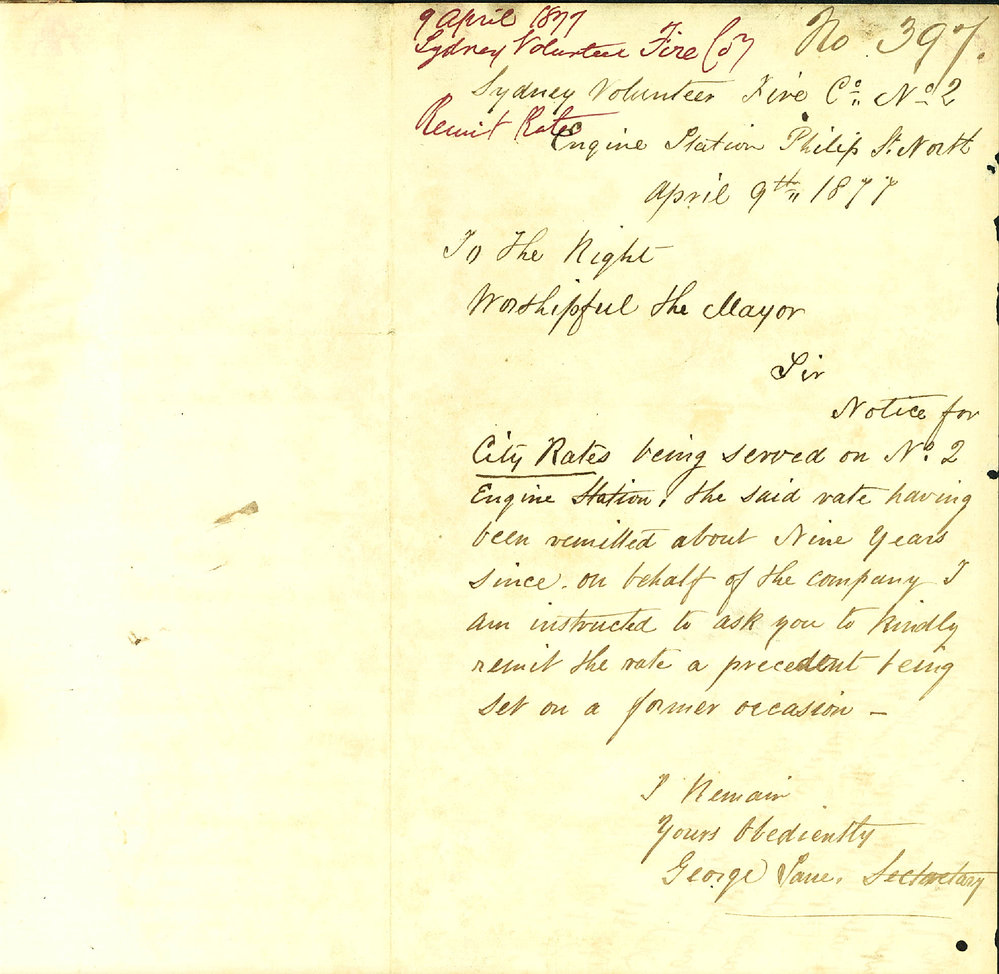 9 April 1877
Sydney Volunteer Fire Coy
No. 397.
Sydney Volunteer Fire Co. No. 2
Remit Rates
Engine Station Philip St. North
April 9th 1877
To The Right
Worshipful the Mayor
Sir
Notice for
City Rates being served on No. 2
Engine Station, the said rate having
been remitted about Nine Years
since. on behalf of the company I
am instructed to ask you to kindly
remit the rate a precedent being
set on a former occasion –
I Remain
Yours Obediently
George Secretary